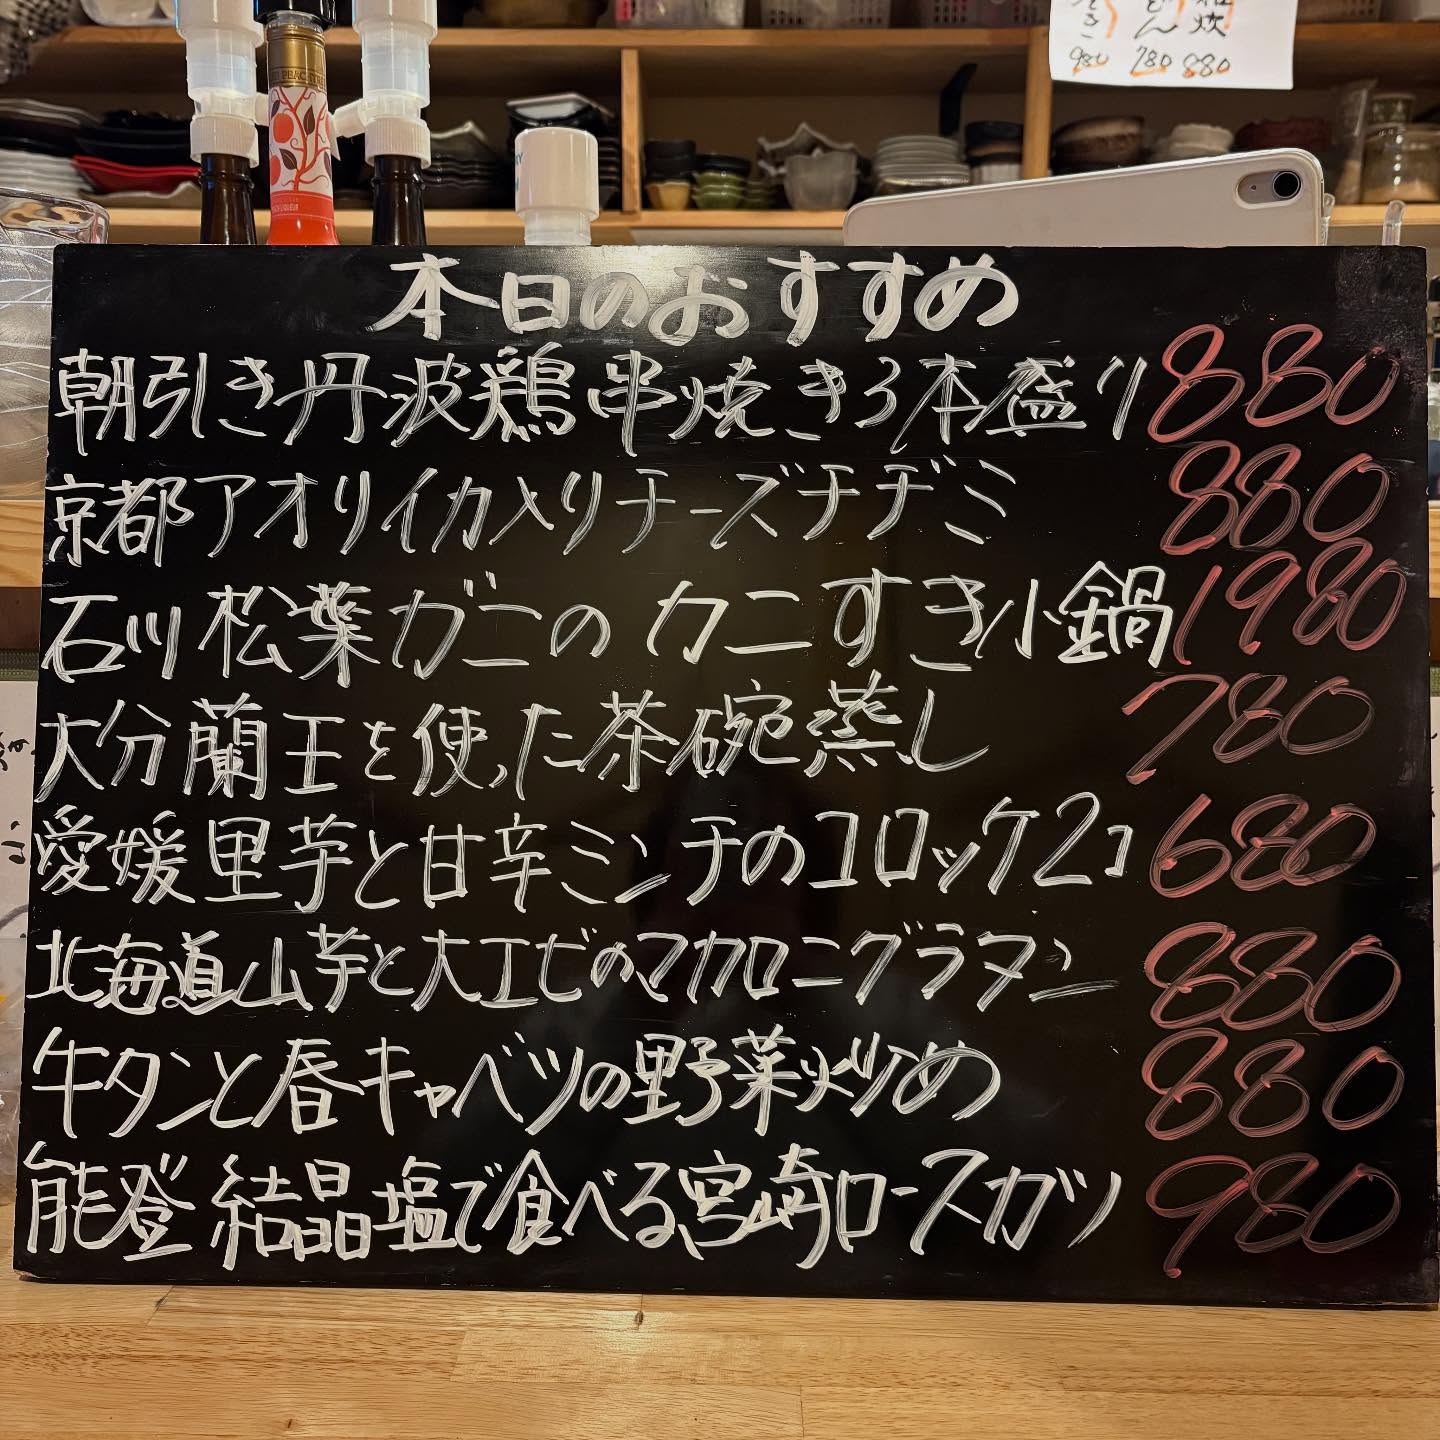 炊
980 780 880
本日のおすすめ
朝引き丹波鶏串焼き3本盛り 880
京都アオリイカ入りチーズチヂミ 880
石川松葉ガニのカニすき小鍋 1980
大分蘭王を使った茶碗蒸し 780
愛媛里芋と甘辛ミンチのコロッケ2コ 680
北海道山芋と大エビのマカロニグラタン 880
牛タンと春キャベツの野菜炒め 880
能登結晶塩で食べる宮崎ロースカツ 980